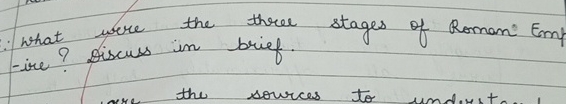 : what were the three stages of Roman Emp
-ire? Discuss in brief.
the sources to